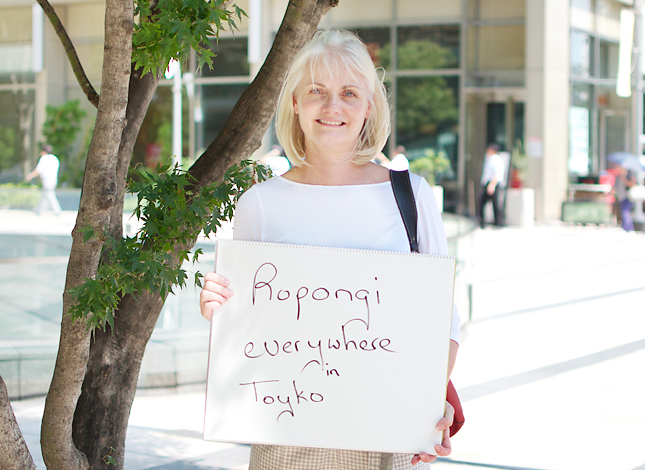 Ropongi
everywhere
in
Toyko